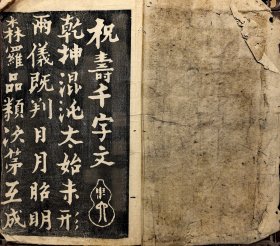 祝壽千字文
乾坤混沌太始未形
兩儀既判日月昭明
森羅品類次第互成